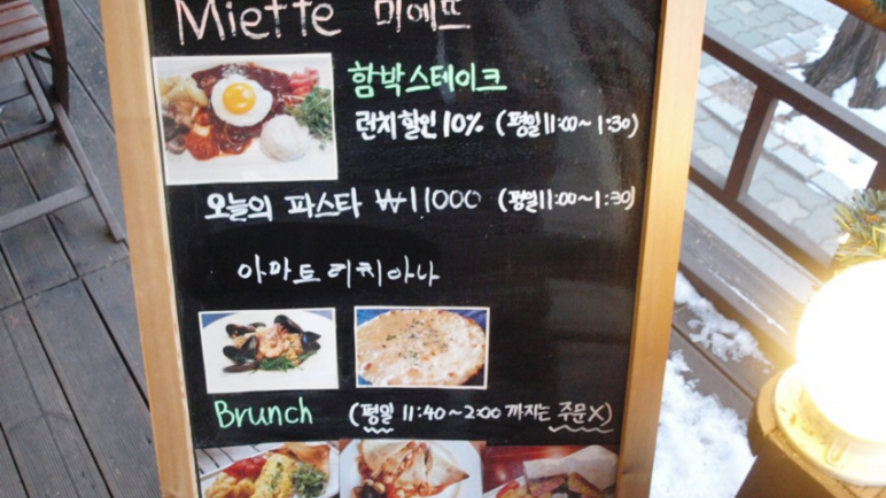 Miette 미에뜨
함박스테이크
런치할인 10% (평일 11:00~1:30)
오늘의 파스타 ₩11000 (평일11:00~1:30)
아마트리치아나
Brunch (평일 11:40~2:00 까지는 주문X)